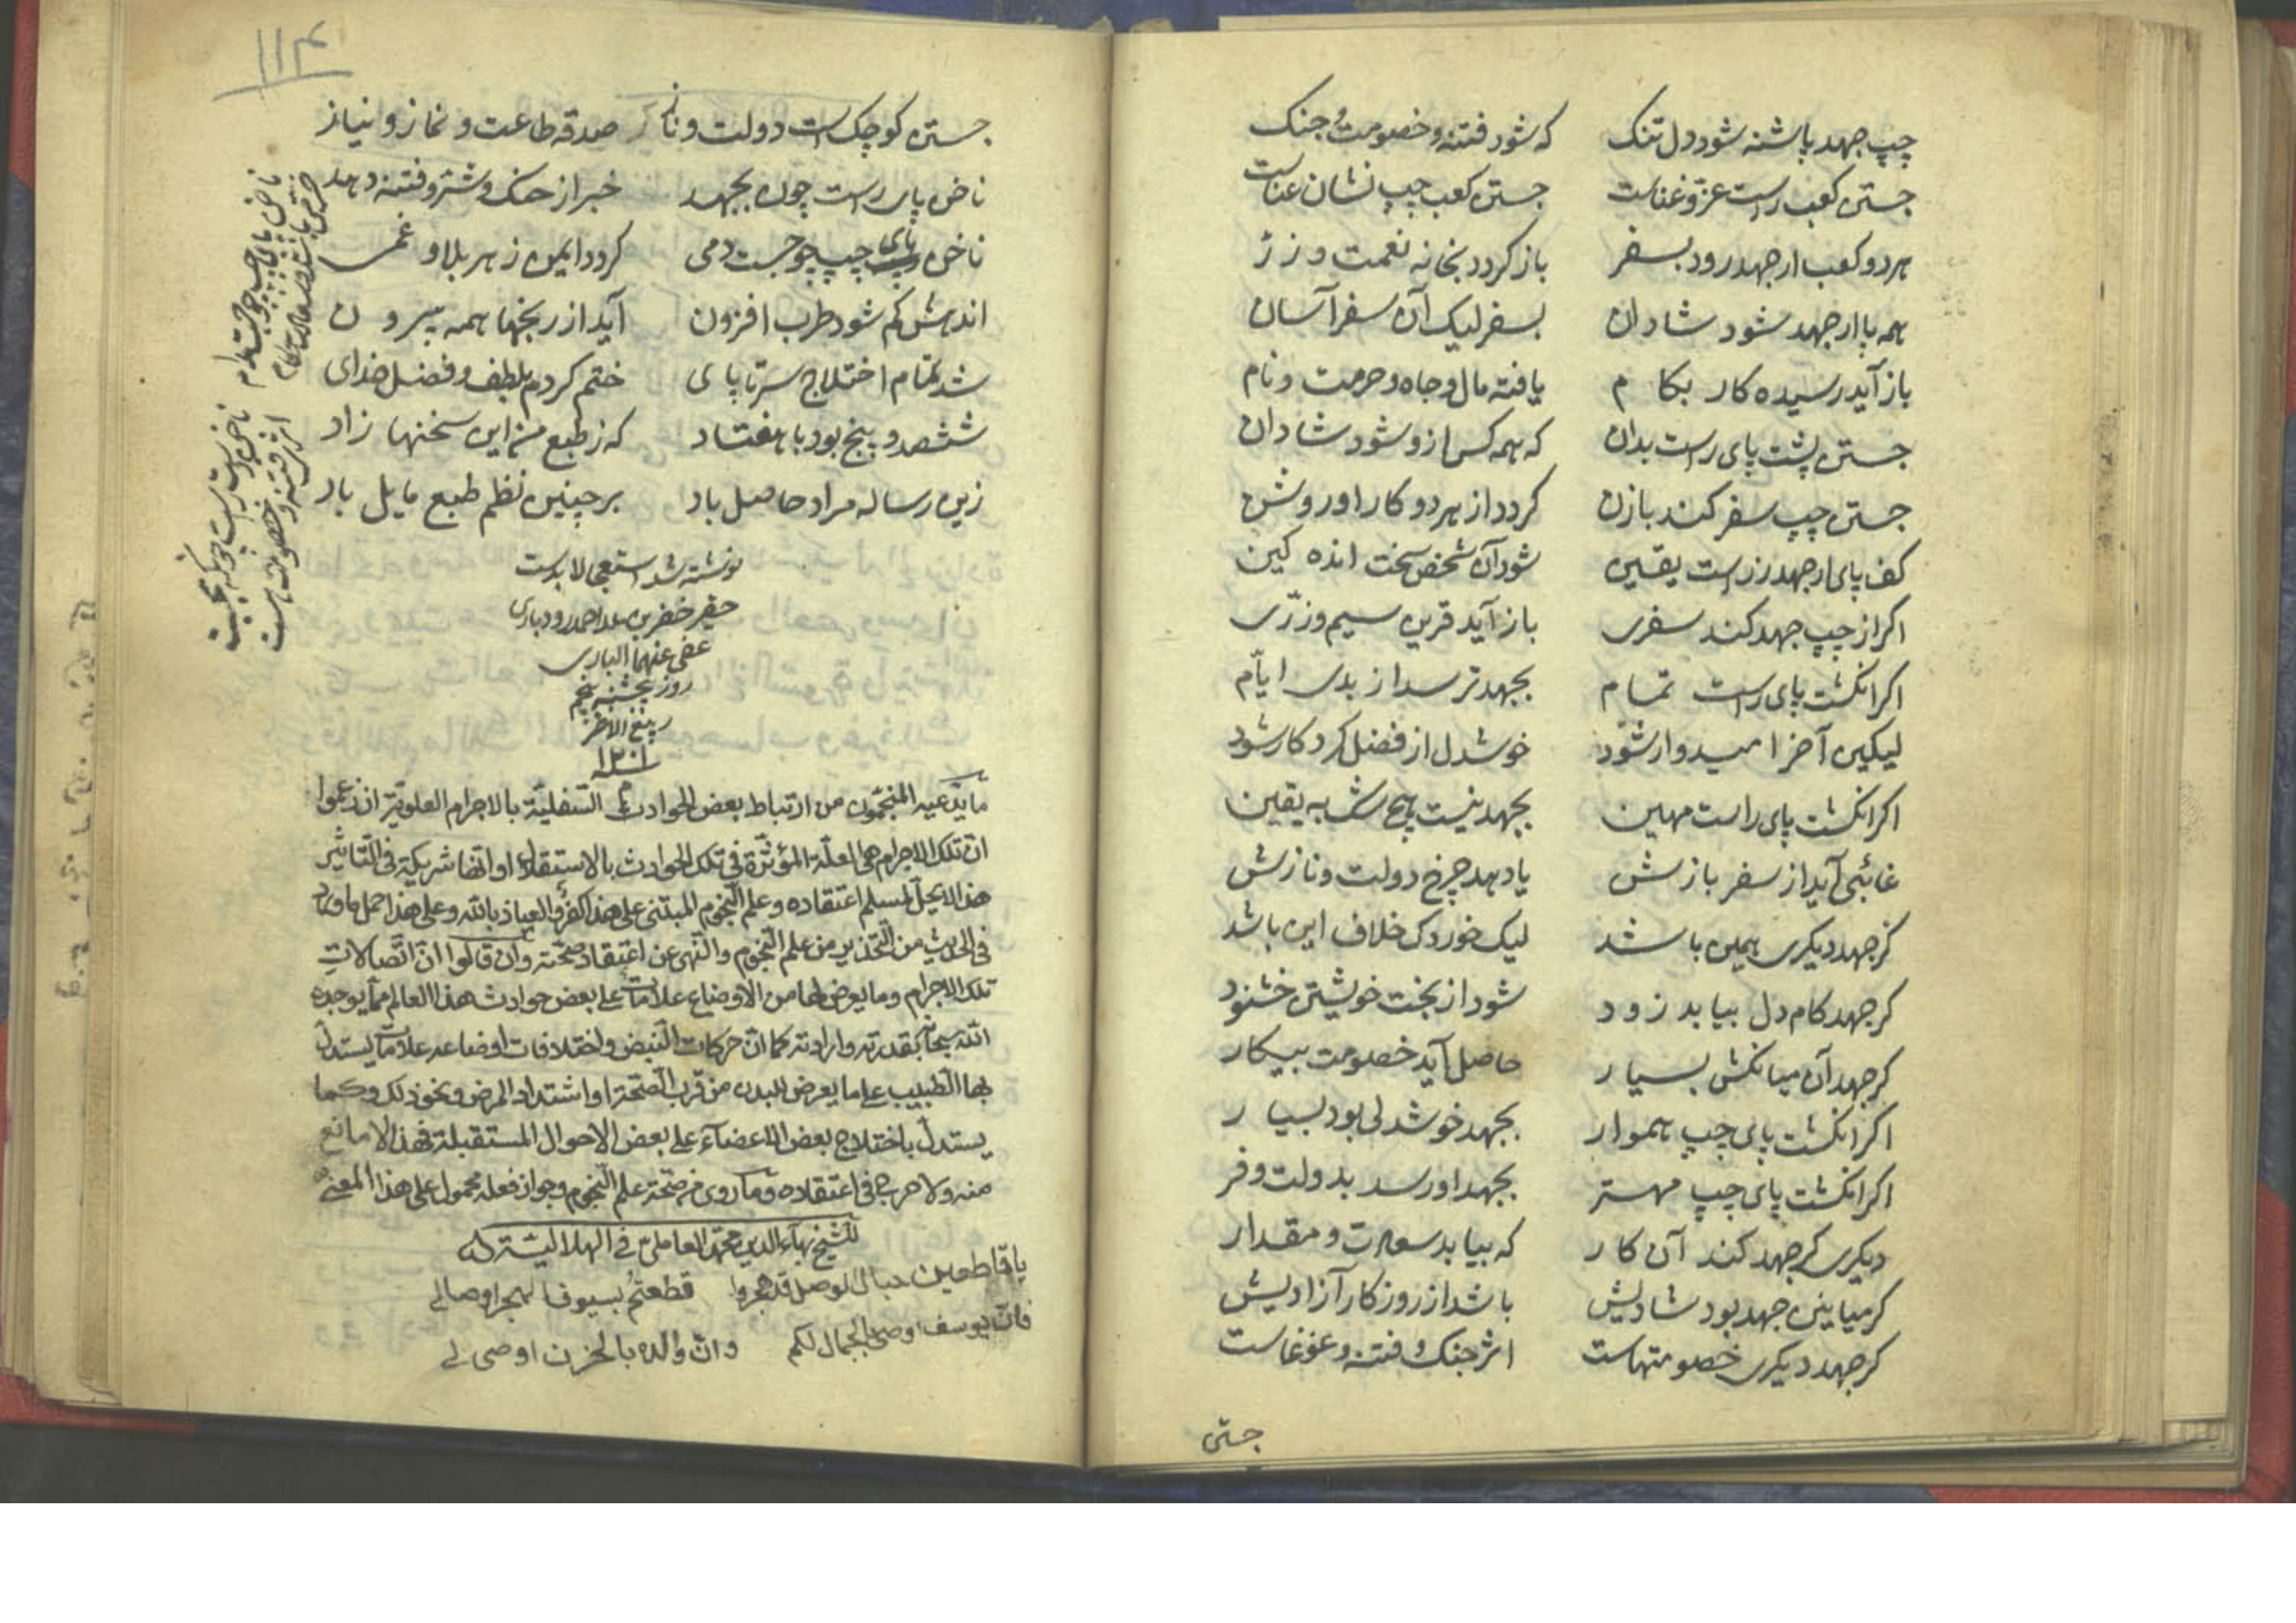 چپ جهد پاشنه شود دل تنک که شود فتنه و خصومت و جنک
جستن کعب راست عز و غناست جستن کعب چپ نشان عناست
هر دو کعب ار جهد رود بسفر باز کردد بخانه نعمت و زر
همه پا ار جهد شود شادان بسفر لیک آن سفر آسان
باز آید رسیده کار بکام یافته مال و جاه و حرمت و نام
جستن پشت پای راست بدان که همه کس ازو شود شادان
جستن چپ سفر کند بازن کردد از هر دو کار او روشن
کف پای ار جهد ز راست یقین شود آن شخص سخت انده کین
اکر از چپ جهد کند سفری باز آید قرین سیم و زری
اکر انکشت پای راست تمام بجهد ترسد از بدی ایام
لیکین آخر امیدوار شود خوشدل از فضل کردکار شود
اکر انکشت پای راست مهین بجهد نیست هیچ شبه یقین
غائبی آید از سفر بازش یا دهد چرخ دولت و نازش
کر جهد دیکری همین باشد لیک خوردک خلاف این باشد
کر جهد کام دل بیابد زود شود از بخت خویشتن خشنود
کر جهد آن میانکش بسیار حاصل آید خصومت بیکار
اکر انکشت پای چپ هموار بجهد خوشدلی بود بسیار
اکر انکشت پای چپ مهتر بجهد او رسد بدولت و فر
دیکری کر جهد کند آن کار که بیابد سعادت و مقدار
کر میانین جهد بود شادیش باشد از روزکار آزادیش
کر جهد دیکری خصومتهاست اثر جنک و فتنه و غوغاست
جستن
۱۱۴
جستن کوچک است دولت و ناز صدقه طاعت و نماز و نیاز
ناخن پای راست چون بجهد خبر از جنک و شر و فتنه دهد
ناخن پای چپ چو جست دمی کردد ایمن ز هر بلا و غمی
اندهش کم شود طرب افزون آید از رنجها همه بیرون
شد تمام اختلاج سر تا پای ختم کردم بلطف و فضل خدای
ششصد و پنج بود با هفتاد که ز طبع من این سخنها زاد
زین رساله مراد حاصل باد بر چنین نظم طبع مایل باد
نوشته شد استعجالا بدست
حقیر خضر بن احمد رودباری
عفی عنهما الباری
روز پنجشنبه پنجم
ربیع الاخر
سنه ۱۲۰۱
ما یدعیه المنجمون من ارتباط بعض الحوادث السفلیة بالاجرام العلویة ان زعموا
ان تلک الاجرام هی العلة المؤثرة فی تلک الحوادث بالاستقلال او انها شریکة فی التاثیر
هذا لا یحل لمسلم اعتقاده و علم النجوم المبتنی علی هذا کفر و العیاذ بالله و علی هذا حمل ما ورد
فی الحدیث من التحذیر من علم النجوم و النهی عن اعتقاد صحته و ان قالوا ان اتصالات
تلک الاجرام و ما یعرض لها من الاوضاع علامات علی بعض حوادث هذا العالم مما یوجده
الله سبحانه بقدرته و ارادته کما ان حرکات النبض و اختلافات اوضاعه علامات یستدل
بها الطبیب علی ما یعرض للبدن من قرب الصحة او اشتداد المرض و نحو ذلک و کما
یستدل باختلاج بعض الاعضاء علی بعض الاحوال المستقبلة فهذا لا مانع
منه و لا حرج فی اعتقاده و ما روی من صحة علم النجوم و جواز فعله محمول علی هذا المعنی
للشیخ بهاء الدین محمد العاملی فی
یا قاطعین حبال الوصل قد هجروا قطعتم بسیوف الهجر اوصالی
فان یوسف اوصی بالجمال لکم و ان والده بالحزن اوصی لی
ناخن پای چپ چو جست مدام
ناخن دست راست چونکه بجست
اثر فتنه و خصومت هست